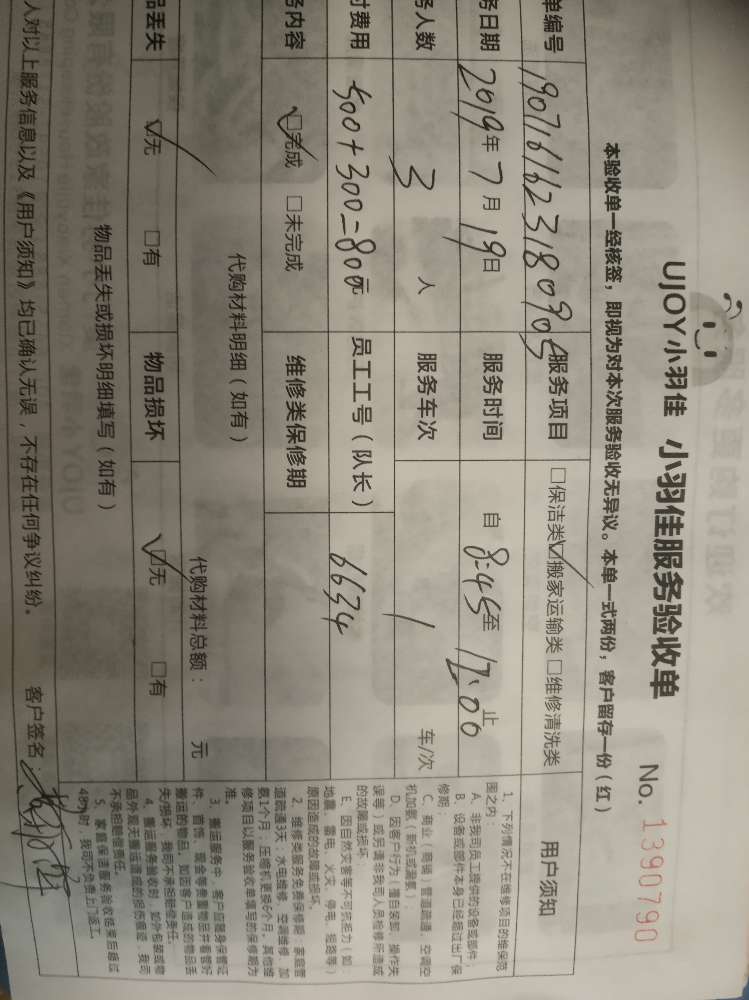 UJOY小羽佳 小羽佳服务验收单 No. 1390790
本验收单一经核签，即视为对本次服务验收无异议。本单一式两份，客户留存一份（红）
单编号 190716162318090 服务项目 □保洁类 ☑搬家运输类 □维修清洗类
务日期 2019年7月19日 服务时间 自 8:45 至 12:00 止
务人数 3 人 服务车次 1 车/次
付费用 500+300=800元 员工工号（队长） 6634
务内容 ☑完成 □未完成 维修类保修期
代购材料明细（如有） 代购材料总额： 元
品丢失 ☑无 □有 物品损坏 ☑无 □有
物品丢失或损坏明细填写（如有）
人对以上服务信息以及《用户须知》均已确认无误，不存在任何争议纠纷。 客户签名：
用户须知
1、下列情况不在维修项目的维保范
围之内：
A、非我司员工提供的设备或部件；
B、设备或部件本身已经超过出厂保
修期；
C、商业（商铺）管道疏通、空调空
机加氨（新机或漏氨）；
D、因客户行为（擅自装卸、操作失
误等）或另请非我司人员检修所造成
的故障或损坏
E、因自然灾害等不可抗拒力（如：
地震、雷电、火灾、停电、短路等）
原因造成的故障或损坏。
2、维修类服务免费保修期：家庭管
道疏通3天；水电维修、空调维修、加
氨1个月；压缩机更换6个月，其他维
修项目以服务验收单填写的保修期为
准。
3、搬运服务中，客户应随身保管证
件、首饰、现金等贵重物品并看管好
搬运的物品，如因客户造成的物品丢
失/损坏，我司不承担赔偿责任。
4、搬运服务验收时，如外包装或物
品外观无搬运造成的损伤痕迹，我司
不承担赔偿责任。
5、家庭保洁服务验收结束后超过
48小时，我司不负责上门返工。